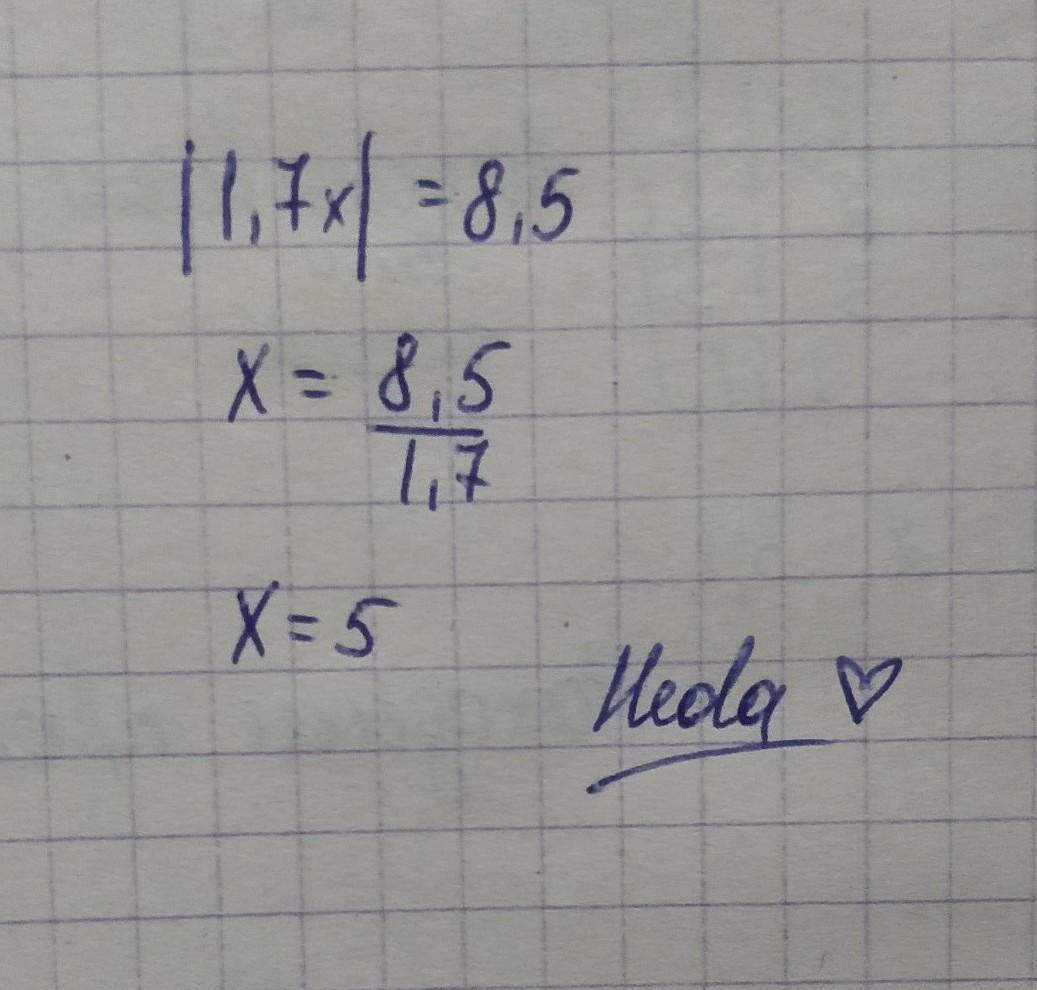 |1,7x| = 8,5
x = 8,5/1,7
x = 5